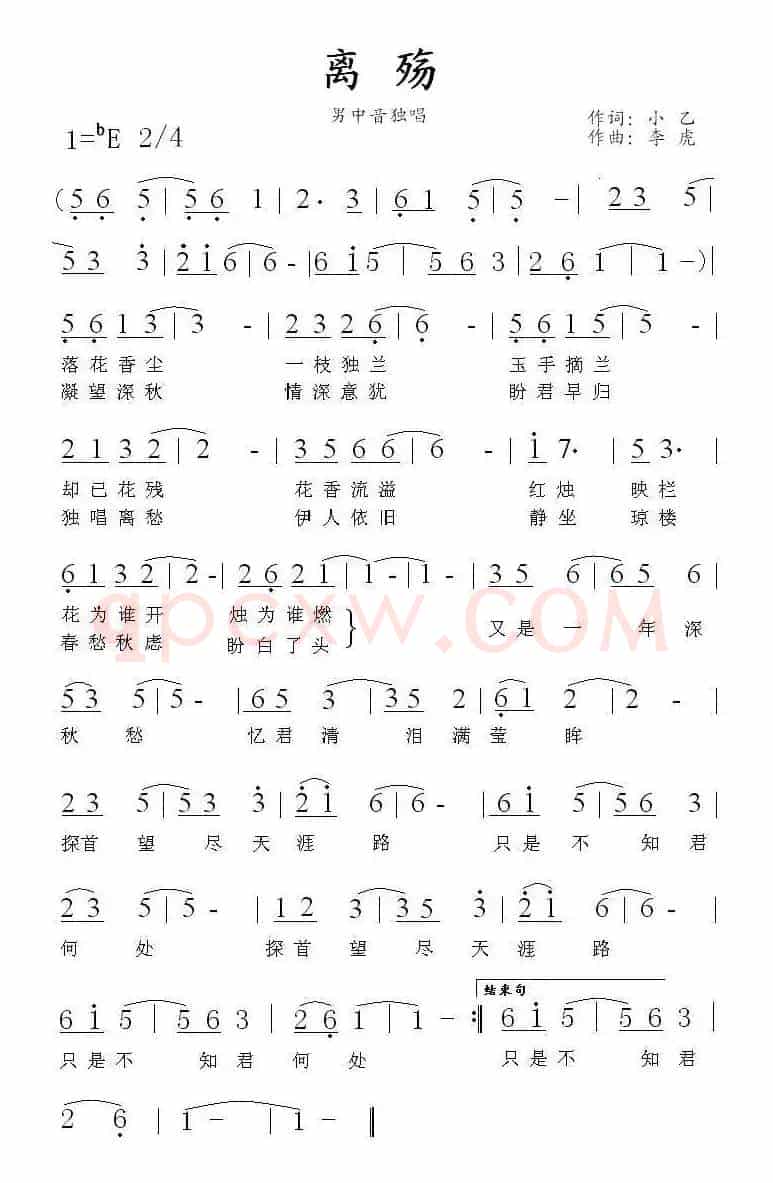 离 殇
男中音独唱
1=ᵇE 2/4
作词：小 乙
作曲：李 虎
(5̣6̣ 5̣ | 5̣6̣ 1 | 2· 3 | 6̣1 5̣ | 5̣ - | 23 5 |
53 3̇ | 2̇i̇6 | 6 - | 6i̇5 | 563 | 26̣ 1 | 1 - ) |
5̣6̣13 | 3 - | 2326̣ | 6̣ - | 5̣6̣15 | 5 - |
落花香尘 一枝独兰 玉手摘兰
凝望深秋 情深意犹 盼君早归
2132 | 2 - | 3566 | 6 - | i̇ 7· | 5 3· |
却已花残 花香流溢 红烛 映栏
独唱离愁 伊人依旧 静坐 琼楼
6̣132 | 2 - | 26̣21 | 1 - | 1 - | 35 6 | 65 6 |
花为谁开 烛为谁燃 又是一 年深
春愁秋虑 盼白了头
53 5 | 5 - | 65 3 | 35 2 | 6̣1 2 | 2 - |
秋 愁 忆君清 泪满莹 眸
23 5 | 53 3̇ | 2̇i̇ 6 | 6 - | 6i̇ 5 | 56 3 |
探首 望 尽天涯 路 只是不 知君
23 5 | 5 - | 12 3 | 35 3̇ | 2̇i̇ 6 | 6 - |
何 处 探首望 尽天涯 路
结束句
6i̇ 5 | 563 | 26̣ 1 | 1 - :‖ 6i̇ 5 | 563 |
只是不 知君何处 只是不 知君
2 6̣ | 1 - | 1 - ‖
qpcxw.COM